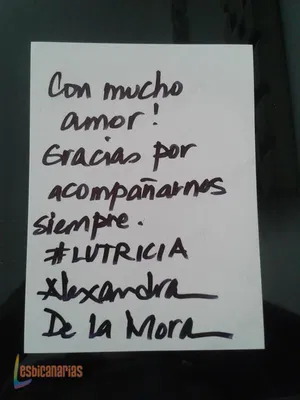 Con mucho
amor!
Gracias por
acompañarnos
siempre.
#LUTRICIA
Alexandra
De la Mora
Lesbicanarias